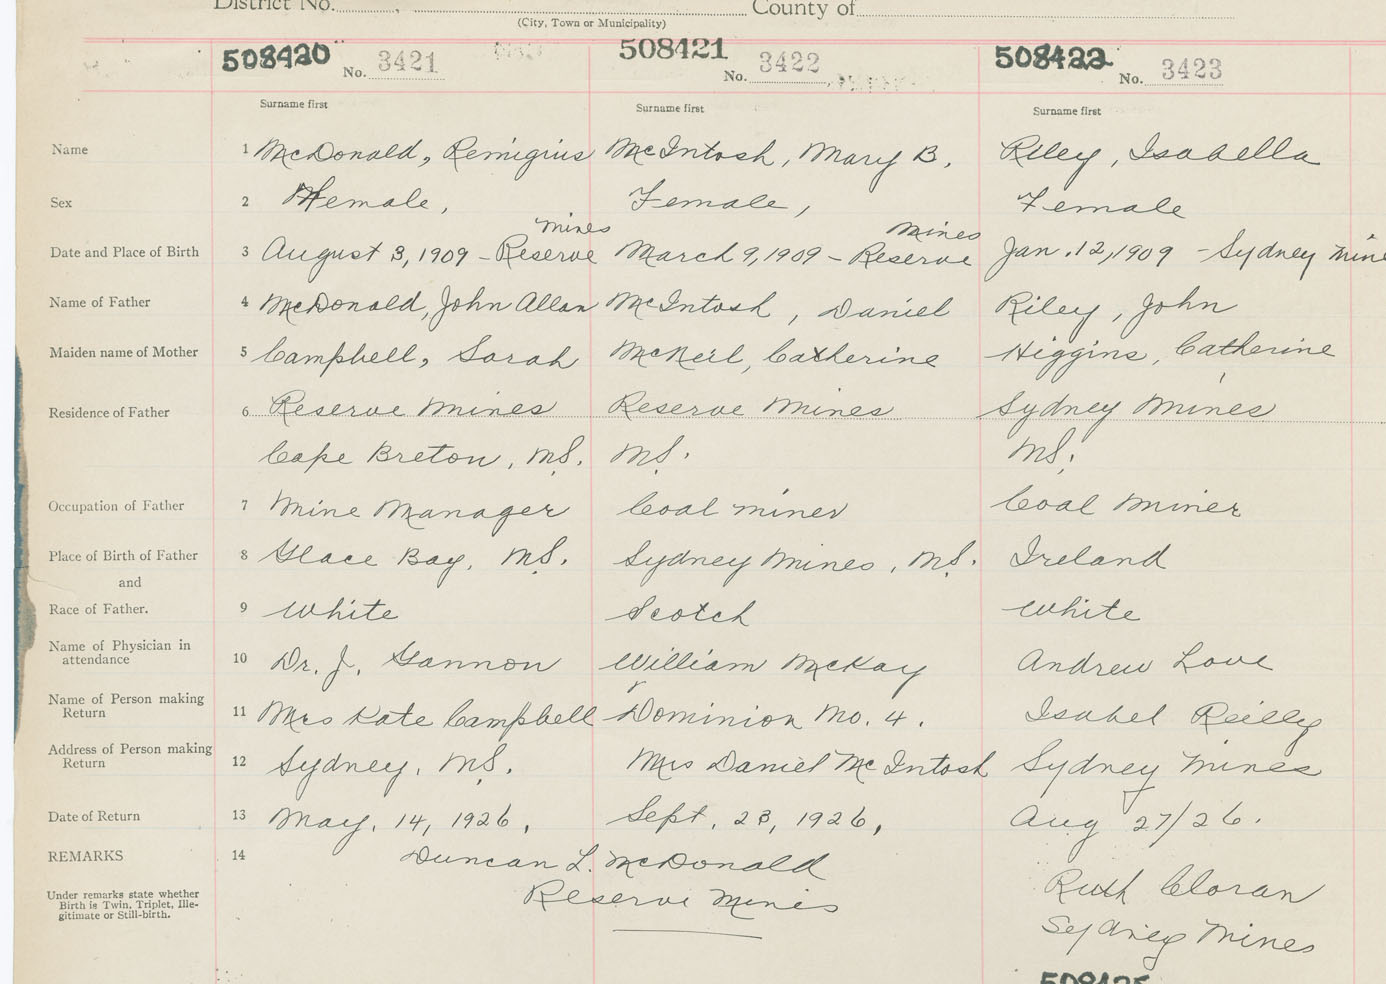 District No. , County of
(City, Town or Municipality)
508420 No. 3421 508421 No. 3422 508422 No. 3423
Surname first Surname first Surname first
Name 1 McDonald, Remigius McIntosh, Mary B. Riley, Isabella
Sex 2 Female, Female, Female
mines mines
Date and Place of Birth 3 August 3, 1909 - Reserve March 9, 1909 - Reserve Jan. 12, 1909 - Sydney mine
Name of Father 4 McDonald, John Allan McIntosh, Daniel Riley, John
Maiden name of Mother 5 Campbell, Sarah McNeil, Catherine Higgins, Catherine
Residence of Father 6 Reserve Mines Reserve Mines Sydney Mines
Cape Breton, N.S. N.S. N.S.
Occupation of Father 7 Mine Manager Coal miner Coal Miner
Place of Birth of Father 8 Glace Bay, N.S. Sydney Mines, N.S. Ireland
and
Race of Father. 9 White Scotch White
Name of Physician in
attendance 10 Dr. J. Gannon William McKay Andrew Love
Name of Person making
Return 11 Mrs Kate Campbell Dominion No. 4. Isabel Reilly
Address of Person making
Return 12 Sydney, N.S. Mrs Daniel McIntosh Sydney Mines
Date of Return 13 May, 14, 1926, Sept. 23, 1926, Aug 27/26.
REMARKS 14 Duncan L. McDonald
Reserve Mines
Ruth Cloran
Sydney Mines
Under remarks state whether
Birth is Twin, Triplet, Ille-
gitimate or Still-birth.